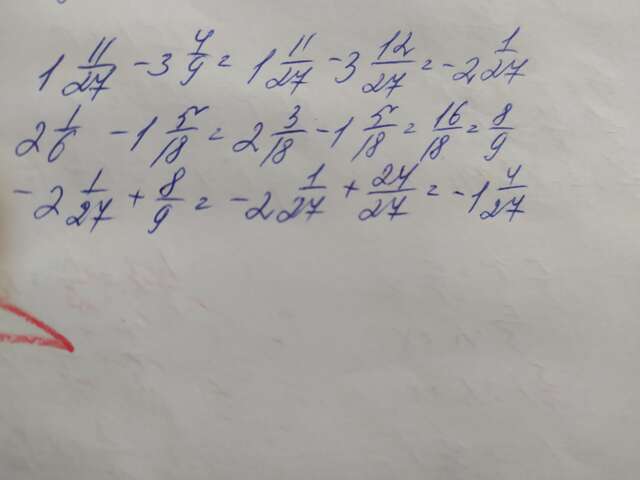 1 11/27 - 3 4/9 = 1 11/27 - 3 12/27 = - 2 1/27
2 1/6 - 1 5/18 = 2 3/18 - 1 5/18 = 16/18 = 8/9
- 2 1/27 + 8/9 = - 2 1/27 + 24/27 = - 1 4/27